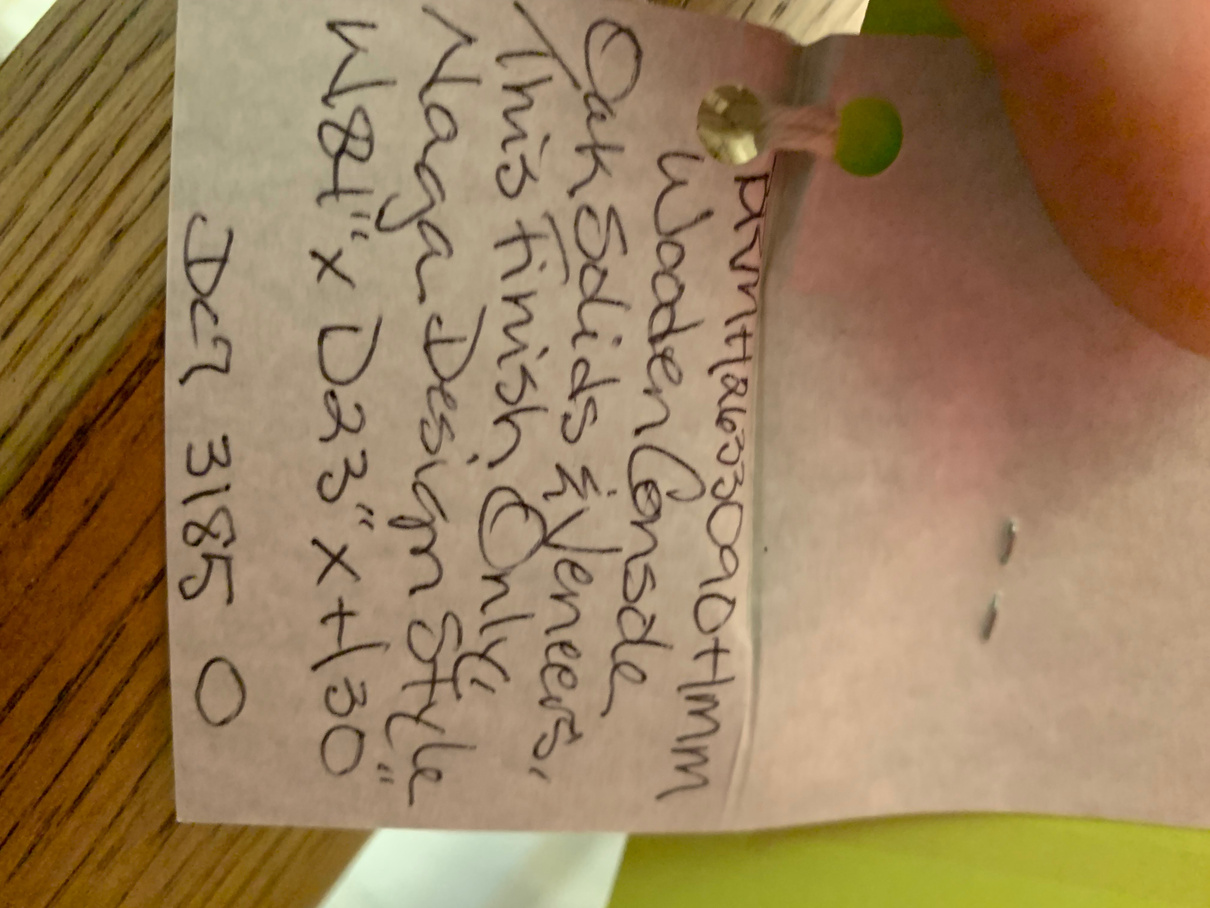 Wooden Console
Oak Solids & Veneers,
This Finish Only,
Naga Design Style
W84" x D23" x H30"
3185 0